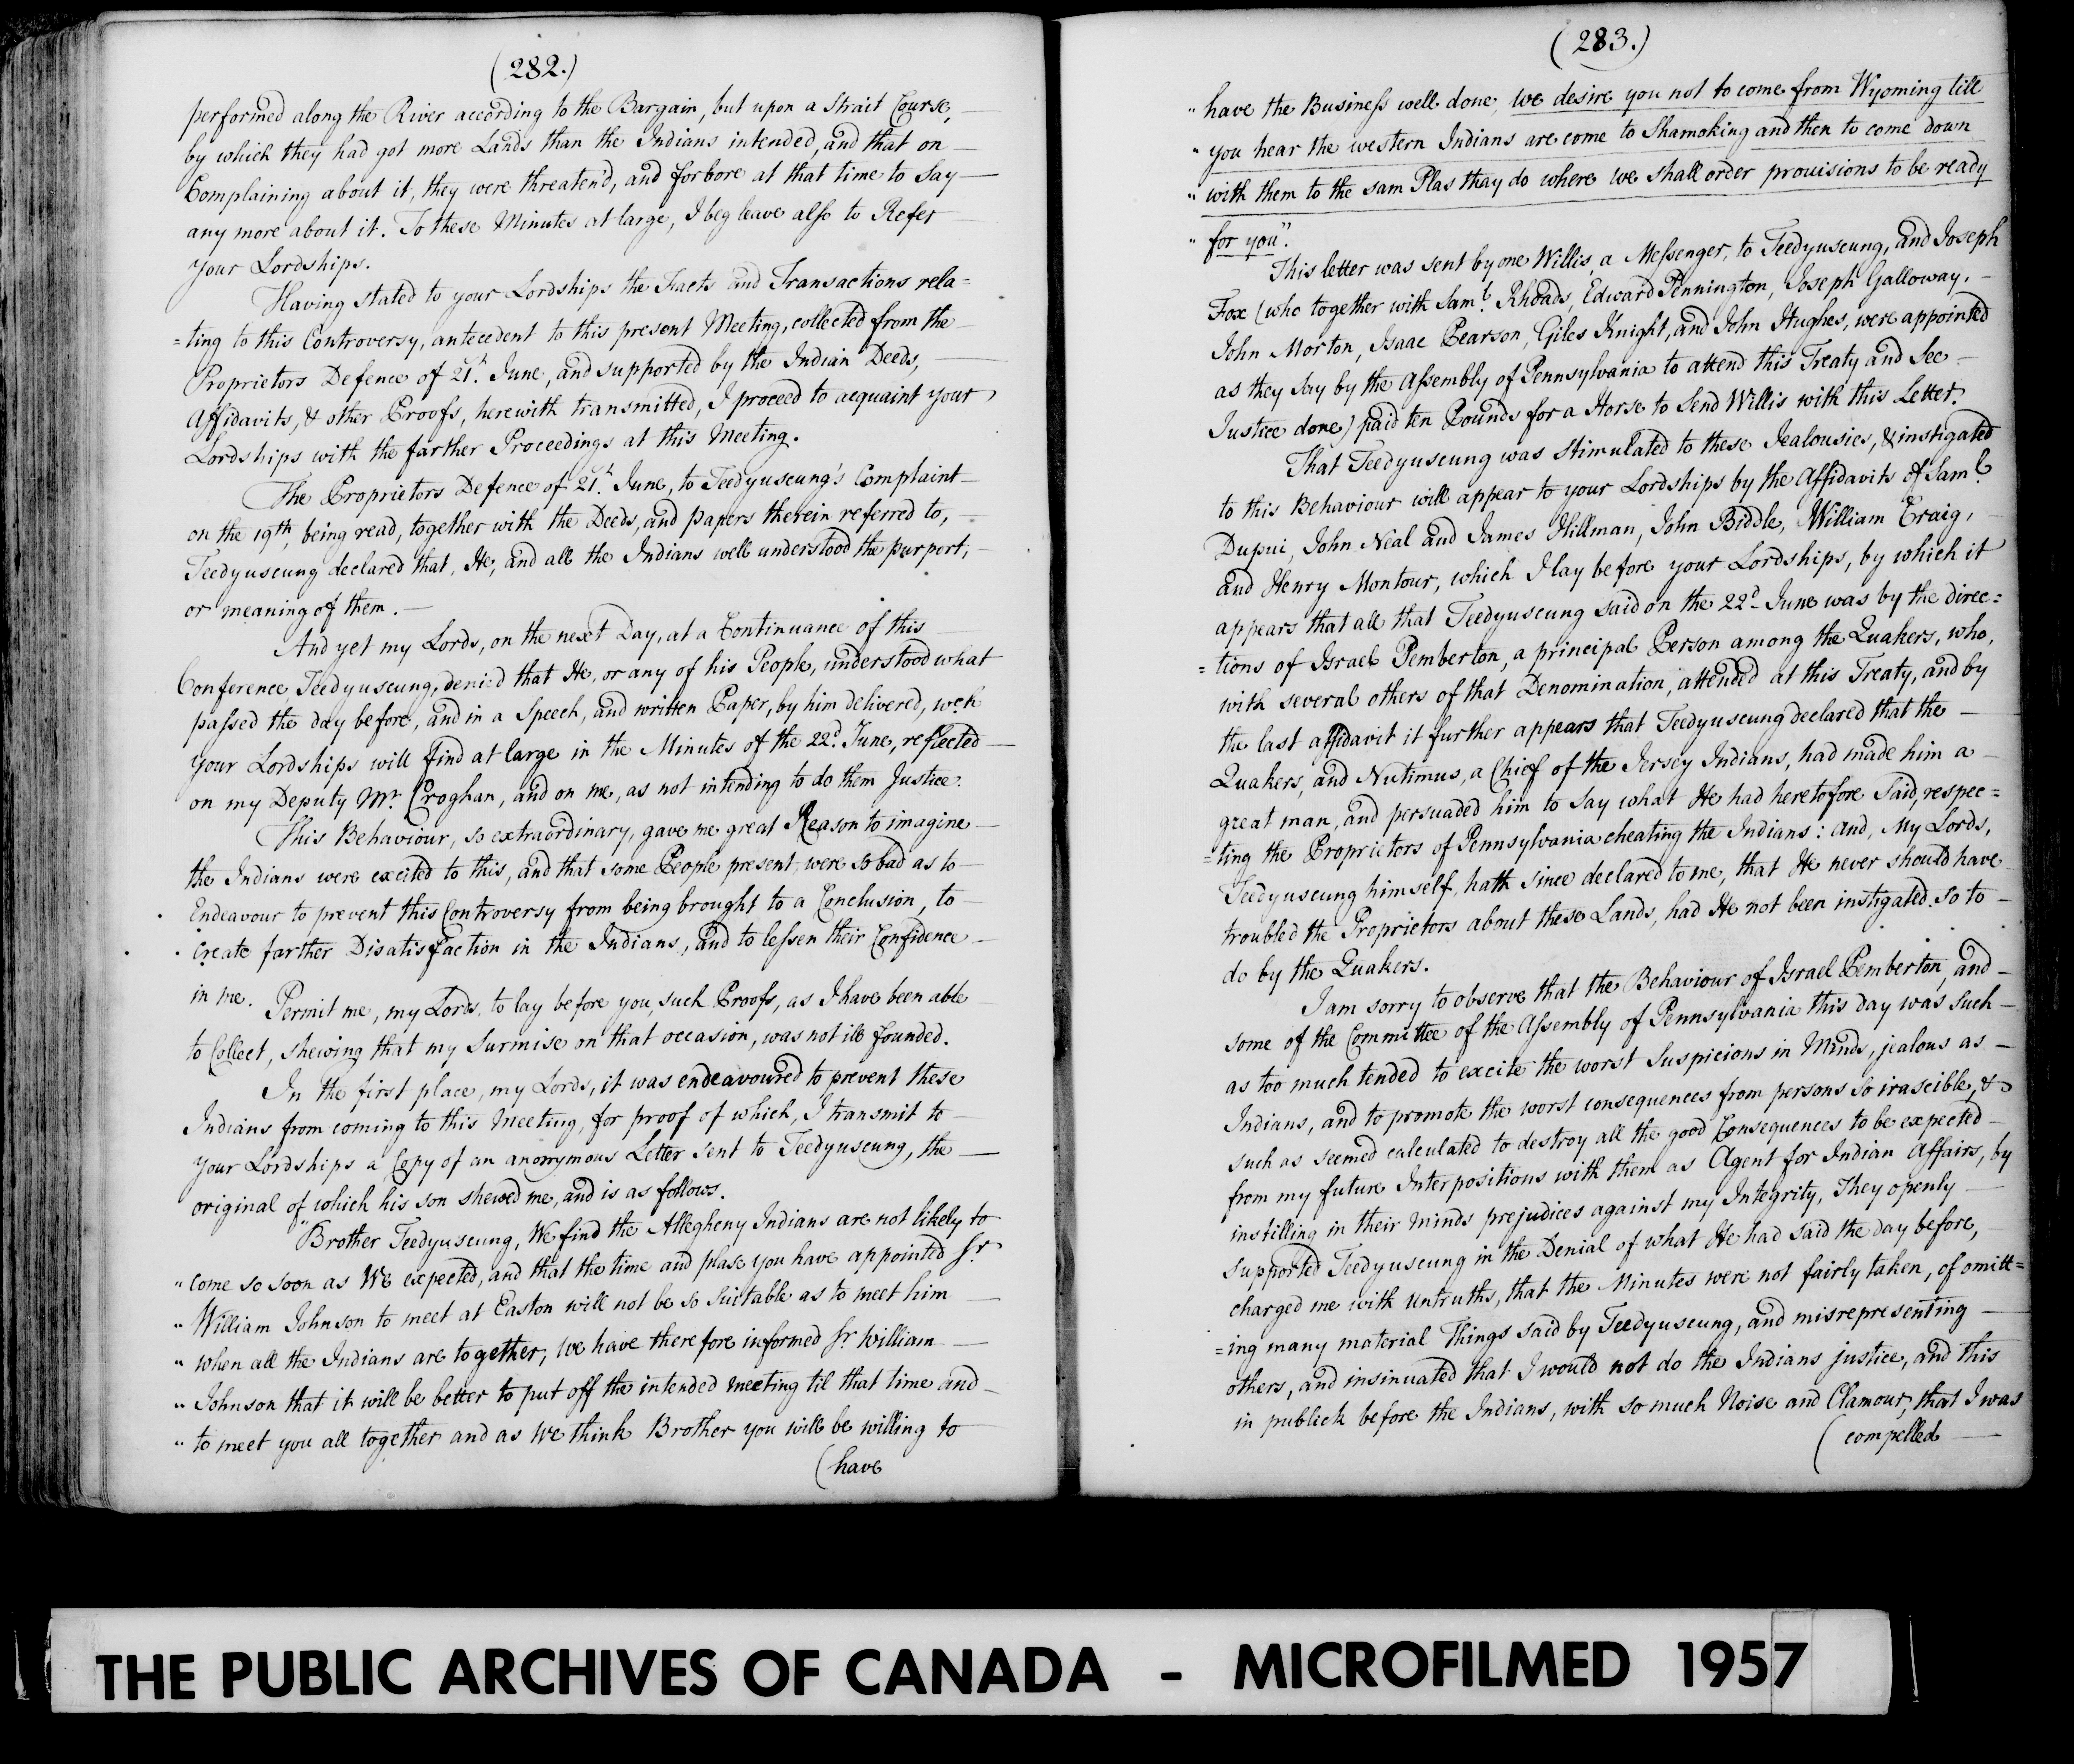 (282.)
performed along the River according to the Bargain, but upon a strait Course,
by which they had got more Lands than the Indians intended, and that on
Complaining about it, they were threatend, and forbore at that time to say
any more about it. To these Minutes at large, I beg leave also to Refer
your Lordships.
Having stated to your Lordships the Facts and Transactions rela=
=ting to this Controversy, antecedent to this present Meeting, collected from the
Proprietors Defence of 21st. June, and supported by the Indian Deeds,
Affidavits, & other Proofs, herewith transmitted, I proceed to acquaint your
Lordships with the farther Proceedings at this Meeting.
The Proprietors Defence of 21st. June, to Teedyuscung's Complaint
on the 19th, being read, together with the Deeds, and papers therein referred to,
Teedyuscung declared that, He, and all the Indians well understood the purport,
or meaning of them. —
And yet my Lords, on the next Day, at a Continuance of this
Conference, Teedyuscung, denied that He, or any of his People, understood what
passed the day before, and in a Speech, and written Paper, by him delivered, wch
your Lordships will find at large in the Minutes of the 22d. June, reflected
on my Deputy Mr. Croghan, and on me, as not intending to do them Justice.
This Behaviour, so extraordinary, gave me great Reason to imagine
the Indians were excited to this, and that some People present, were so bad as to
Endeavour to prevent this Controversy from being brought to a Conclusion, to
create farther Disatisfaction in the Indians, and to lessen their Confidence
in me.
Permit me, my Lords, to lay before you, such Proofs, as I have been able
to Collect, shewing that my surmise on that occasion, was not ill founded.
In the first place, my Lords, it was endeavoured to prevent these
Indians from coming to this Meeting, for proof of which, I transmit to
your Lordships a Copy of an anonymous Letter sent to Teedyuscung, the
original of which his son shewed me, and is as follows.
"Brother Teedyuscung, We find the Allegheny Indians are not likely to
" come so soon as We expected, and that the time and plase you have appointed Sr.
" William Johnson to meet at Easton will not be so suitable as to meet him
" when all the Indians are together; we have therefore informed Sr. William
" Johnson that it will be better to put off the intended meeting til that time and
" to meet you all together and as we think Brother you will be willing to
(have
(283.)
" have the Business well done, we desire you not to come from Wyoming till
" you hear the western Indians are come to Shamoking and then to come down
" with them to the sam Plas thay do where we shall order provisions to be ready
" for you".
This letter was sent by one Willis, a Messenger, to Teedyuscung, and Joseph
Fox (who together with Saml. Rhoads, Edward Pennington, Joseph Galloway,
John Morton, Isaac Pearson, Giles Knight, and John Hughes, were appointed
as they say by the Assembly of Pennsylvania to attend this Treaty and see
Justice done) paid ten Pounds for a Horse to send Willis with this Letter.
That Teedyuscung was stimulated to these Jealousies, & instigated
to this Behaviour will appear to your Lordships by the Affidavits of Saml.
Dupui, John Neal and James Hillman, John Biddle, William Craig,
and Henry Montour, which I lay before your Lordships, by which it
appears that all that Teedyuscung said on the 22d June was by the direc=
=tions of Israel Pemberton, a principal Person among the Quakers, who,
with several others of that Denomination, attended at this Treaty, and by
the last affidavit it further appears that Teedyuscung declared that the
Quakers, and Nutimus, a Chief of the Jersey Indians, had made him a
great man, and persuaded him to say what He had heretofore said, respec=
=ting the Proprietors of Pennsylvania cheating the Indians: and, My Lords,
Teedyuscung himself, hath since declared to me, that He never should have
troubled the Proprietors about these Lands, had He not been instigated so to
do by the Quakers.
I am sorry to observe that the Behaviour of Israel Pemberton, and
some of the Committee of the Assembly of Pennsylvania this day was such
as too much tended to excite the worst suspicions in Minds, jealous as
Indians, and to promote the worst consequences from persons so irascible, &
such as seemed calculated to destroy all the good Consequences to be expected
from my future Interpositions with them as Agent for Indian Affairs, by
instilling in their minds prejudices against my Integrity, They openly
supported Teedyuscung in the Denial of what He had said the day before,
charged me with untruths, that the Minutes were not fairly taken, of omitt=
=ing many material Things said by Teedyuscung, and misrepresenting
others, and insinuated that I would not do the Indians justice, and this
in publick before the Indians, with so much Noise and Clamour, that I was
(compelled
THE PUBLIC ARCHIVES OF CANADA - MICROFILMED 1957